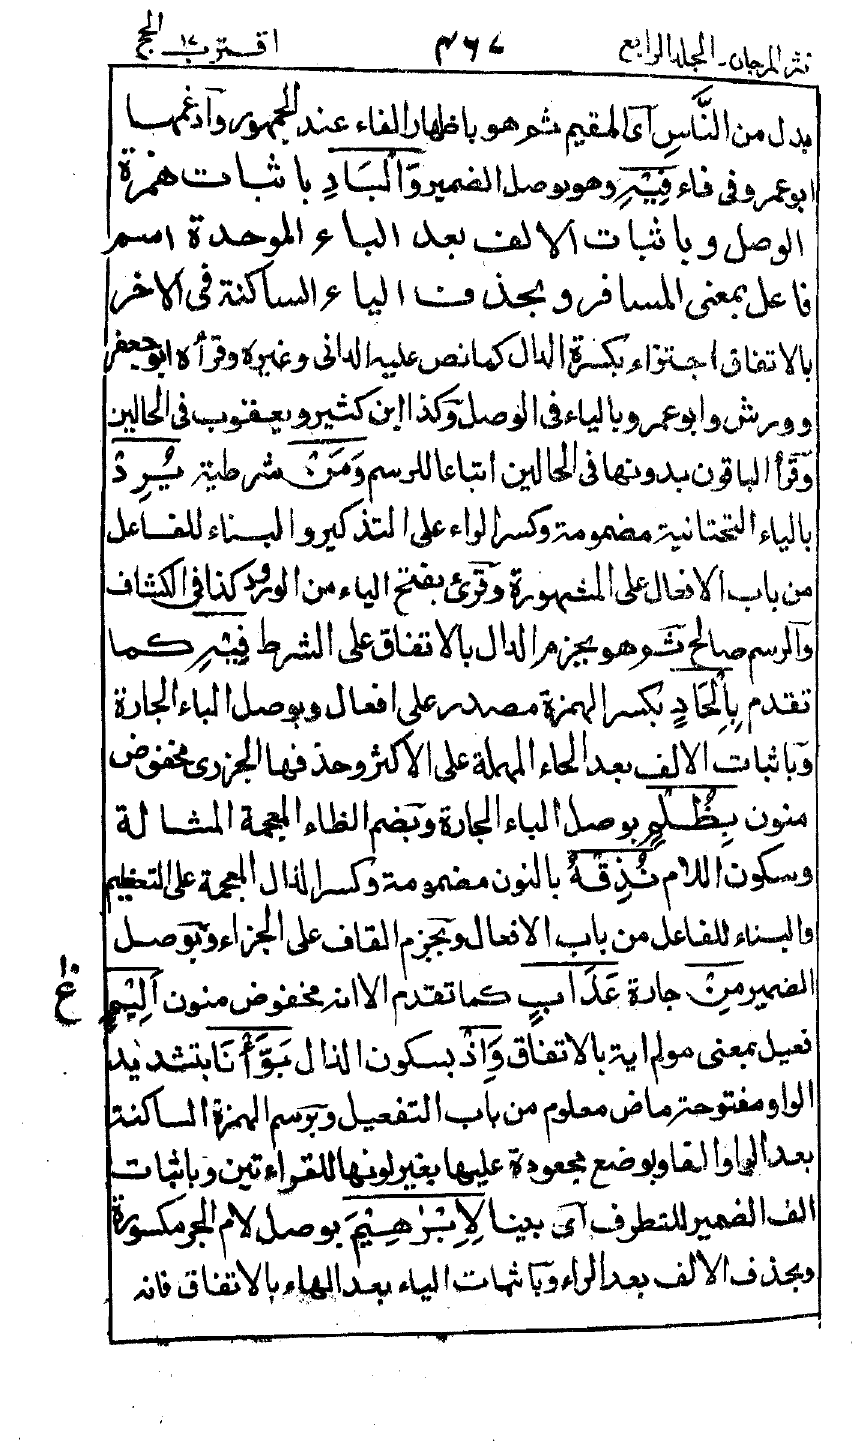 نثر المرجان۔ المجلد الرابع ٤٦٧ اقترب ١٧ الحج
بدل من النَّاسِ آى المقيم ثم هو باظهار الفاء عند الجمهور وآدغمها
ابوعمرو فى فاء فِيْهِ وهو بوصل الضمير وَّالْبَادِ باثبات همزة
الوصل وباثبات الالف بعد الباء الموحدة اسم
فاعل بمعنى المسافر وبحذف الياء الساكنة فى الاخر
بالاتفاق اجتزاء بكسرة الدال كما نص عليه الدانى وغيره وقرأه ابوجعفر
وورش وابوعمرو بالياء فى الوصل وكذا ابن كثير ويعقوب فى الحالين
وقرأ الباقون بدونها فى الحالين اتباعا للرسم وَمَنْ شرطية يُرِدْ
بالياء التحتانية مضمومة وكسر الراء على التذكير والبناء للفاعل
من باب الافعال على المشهورة وقرئ بفتح الياء من الورود كذا فى الكشاف
والرسم صالح ثم هو بجزم الدال بالاتفاق على الشرط فِيْهِ كما
تقدم بِاِلْحَادٍ بكسر الهمزة مصدر على افعال وبوصل الباء الجارة
وباثبات الالف بعد الحاء المهملة على الاكثر وحذفها الجزرى مخفوض
منون بِظُلْمٍ بوصل الباء الجارة وبضم الظاء المعجمة المشالة
وسكون اللام نُذِقْهُ بالنون مضمومة وكسر الذال المعجمة على التعظيم
والبناء للفاعل من باب الافعال وبجزم القاف على الجزاء وبوصل
الضمير مِنْ جارة عَذَابٍ كما تقدم الا انه مخفوض منون اَلِيْمٍ
فعيل بمعنى مولم اية بالاتفاق وَاِذْ بسكون الذال بَوَّأْنَا بتشديد
الواو مفتوحة ماض معلوم من باب التفعيل وبرسم الهمزة الساكنة
بعد الواو الفا وبوضع مجعودة عليها بغير لونها للقراءتين وباثبات
الف الضمير للتطرف آى بينا لِاِبْرٰهِيْمَ بوصل لام الجر مكسورة
وبحذف الالف بعد الراء وباثبات الياء بعد الهاء بالاتفاق فانه